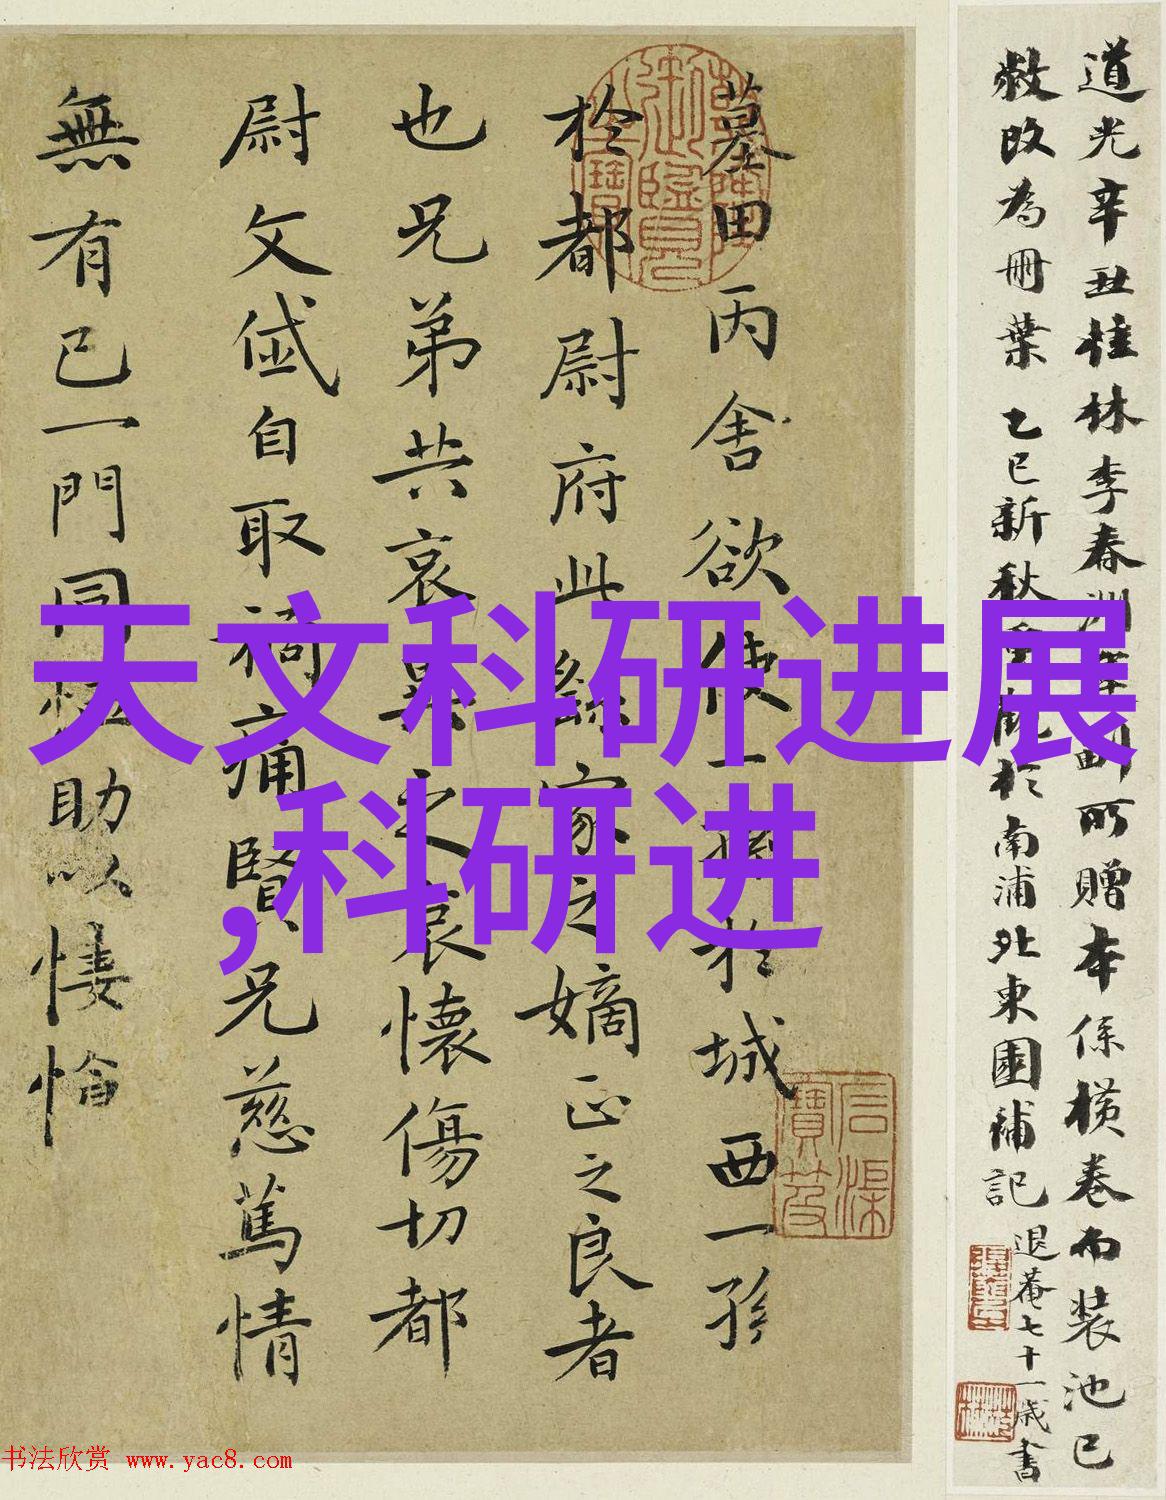 道光辛丑桂林李春洲所贈本係橫卷而裝池已
敝改為冊葉 乙巳新秋重觀於南浦北東園補記 退菴七十一歲書
墓田丙舍欲使一孫於城西一孫
於都尉府此繇家之嫡正之良者
也兄弟共哀異之哀懷傷切都
尉文岱自取禍痛賢兄慈篤情
無有已一門同恤助以悽愴
天文科研进展
,科研进
书法欣赏 www.yac8.com